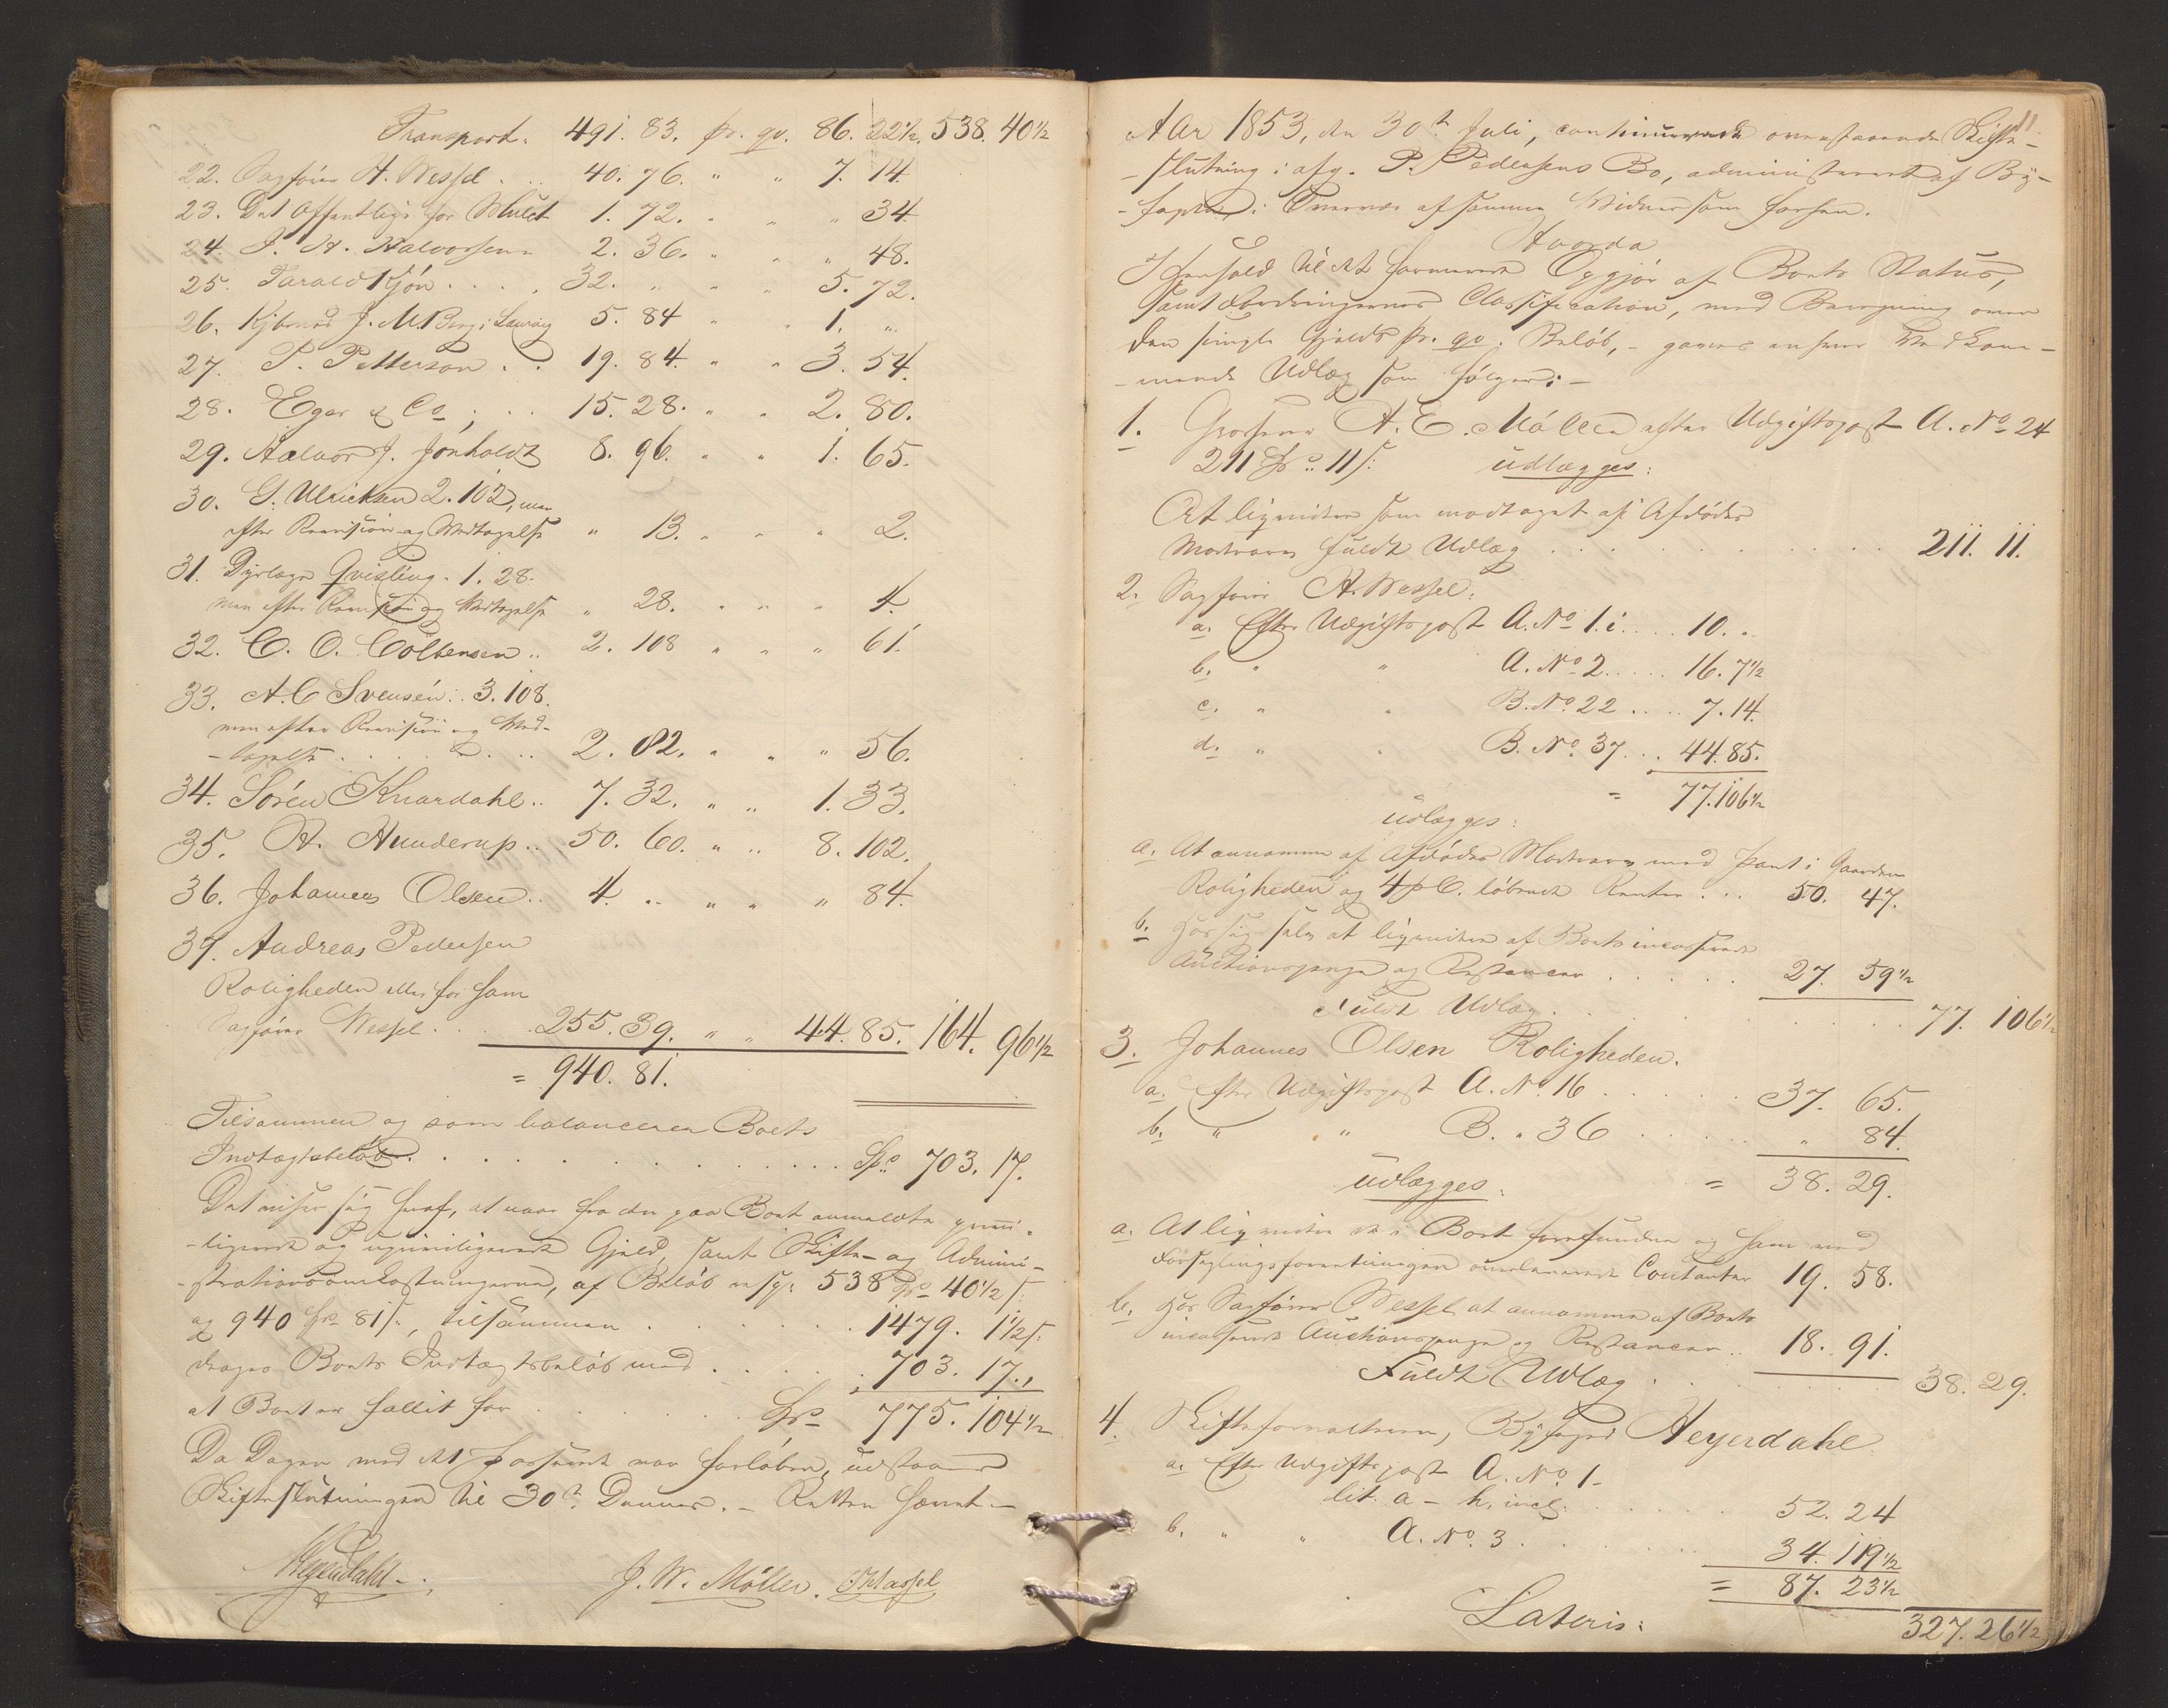 Transport. 491. 83. pr. qv. 86. 22½. 538. 40½
22. Sagfører A. Wessel . . 40. 76. " " 7. 14.
23. Det Offentlige for Mulct 1. 72. " " " 34.
24. J. A. Halvorsen 2. 36. " " " 48.
25. Tarald Kjøn . . . . 32. " " " 5. 72.
26. Kjbmd J. M. Berg i Laurvig 5. 84 " " 1. "
27. P. Petterson . . 19. 84. " " 3. 54.
28. Eger & Co . . . 15. 28. " " 2. 80.
29. Halvor J. Jønholdt 8. 96. " " 1. 65.
30. G. Ulricksen 2. 102, men
efter Revision og Medtagelse " 13. " " " 2.
31. Dyrlæge Qvisling. 1. 28.
men efter Revision og Medtagelse " 28. " " " 4.
32. C. O. Coltensen .. 2. 108 " " " 61.
33. A. C Svensén .. 3. 108.
men efter Revision og Med-
-tagelse . . . . . . . 2. 82. " " " 56.
34. Sørén Knardahl .. 7. 32. " " 1. 33.
35. A. Hunderup .. 50. 60. " " 8. 102.
36. Johannes Olsen .. 4. " " " " 84.
37. Andreas Pedersen
Roligheden eller for ham
Sagfører Wessel . . . . 255. 39. " " 44. 85. 164. 96½
= 940. 81.
Tilsammen og som balancerer Boets
Indtægtsbeløb . . . . . . . . . . Spd 703. 17.
Det viser sig heraf, at naar fra den paa Boet anmeldte privi-
-ligerede og upriviligerede Gjæld, samt Skifte- og Admini-
-strationsomkostningerne, af Beløb resp: 538 Spd 40½ s:
og 940 Spd 81 s:, tilsammen . . . . . . 1479. 1½ s:
drages Boets Indtægtsbeløb med . . . . 703. 17.,
at Boet er fallit for . . . . . . Spd 775. 104½
Da Dagen med det Passerede var forløben, udstaaer
Skifteslutningen til 30te Dennes. – Retten hævet. –
Heyerdahl. J. W. Møller. Hassel
11
Aar 1853, den 30te Juli, continuerede ovenstaaende Skifte-
-slutning i afg. P. Pedersens Bo, administreret af By-
-fogden i Overvær af samme Vidner som forhen.
Hvorda
I Henhold til det formerede Opgjør af Boets Status,
samt Fordringernes Classification, med Beregning over
den simple Gjelds pr. qv. Beløb, – gaves enhver Vedkom-
-mende Udlæg som følger: –
1. Grosserer A. E. Møller efter Udgiftspost A. No 24
211 Spd. 11 s: udlægges:
At liqvidere som modtaget af Afdødes
Mortvarer fuldt Udlæg . . . . . . . . . 211. 11.
2. Sagfører A. Wessel:
a. Efter Udgiftspost A. No 1. i. . . . 10. "
b. " " A. No 2 . . . . . 16. 7½
c. " " B. No 22 . . . . 7. 14.
d. " " B. No 37 . . . 44. 85.
= 77. 106½
udlægges:
a. At annamme af Afdødes Mortvarer med Pant i Gaarden
Roligheden og 4 p C. løbende Renter . . . 50. 47.
b. Hos sig selv at liqvidere af Boets incasserede
Auctionspenge og Restancer . . . . . 27. 59½
Fuldt Udlæg . . . . . . . . . 77. 106½
3. Johannes Olsen Roligheden.
a. Efter Udgiftspost A. No 16 . . . . . 37. 65.
b. " " B. " 36 . . . . . " 84.
udlægges: = 38. 29.
a. At liqvidere de i Boet forefundne og ham ved
Forseglingsforretningen overleverede Contanter 19. 58.
b. Hos Sagfører Wessel at annamme af Boets
incasserede Auctionspenge og Restancer .. 18. 91.
Fuldt Udlæg . . . . . . . . 38. 29.
4. Skifteforvalteren, Byfoged Heyerdahl
a. Efter Udgiftspost A. No 1 –
lit. a – h. incl: . . . . . 52. 24
b. " " A. No. 3 . . . . . . 34. 119½
= 87. 23½
Lateris: 327. 26½